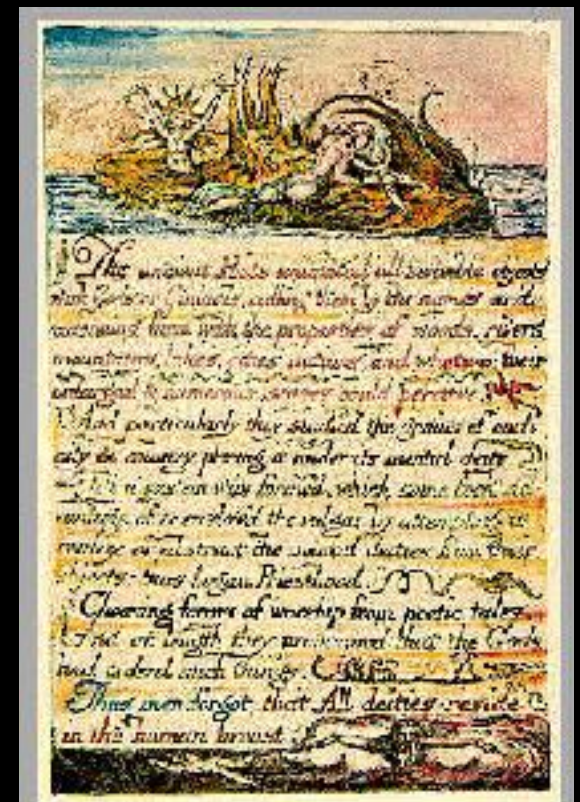 The ancient Poets animated all sensible objects
with Gods or Geniuses, calling them by the names and
adorning them with the properties of woods, rivers,
mountains, lakes, cities, nations, and whatever their
enlarged & numerous senses could perceive.
And particularly they studied the genius of each
city & country placing it under its mental deity
Till a system was formed, which some took ad-
vantage of & enslav'd the vulgar by attempting to
realize or abstract the mental deities from their
objects: thus began Priesthood.
Choosing forms of worship from poetic tales
And at length they pronounced that the Gods
had orderd such things.
Thus men forgot that All deities reside
in the human breast